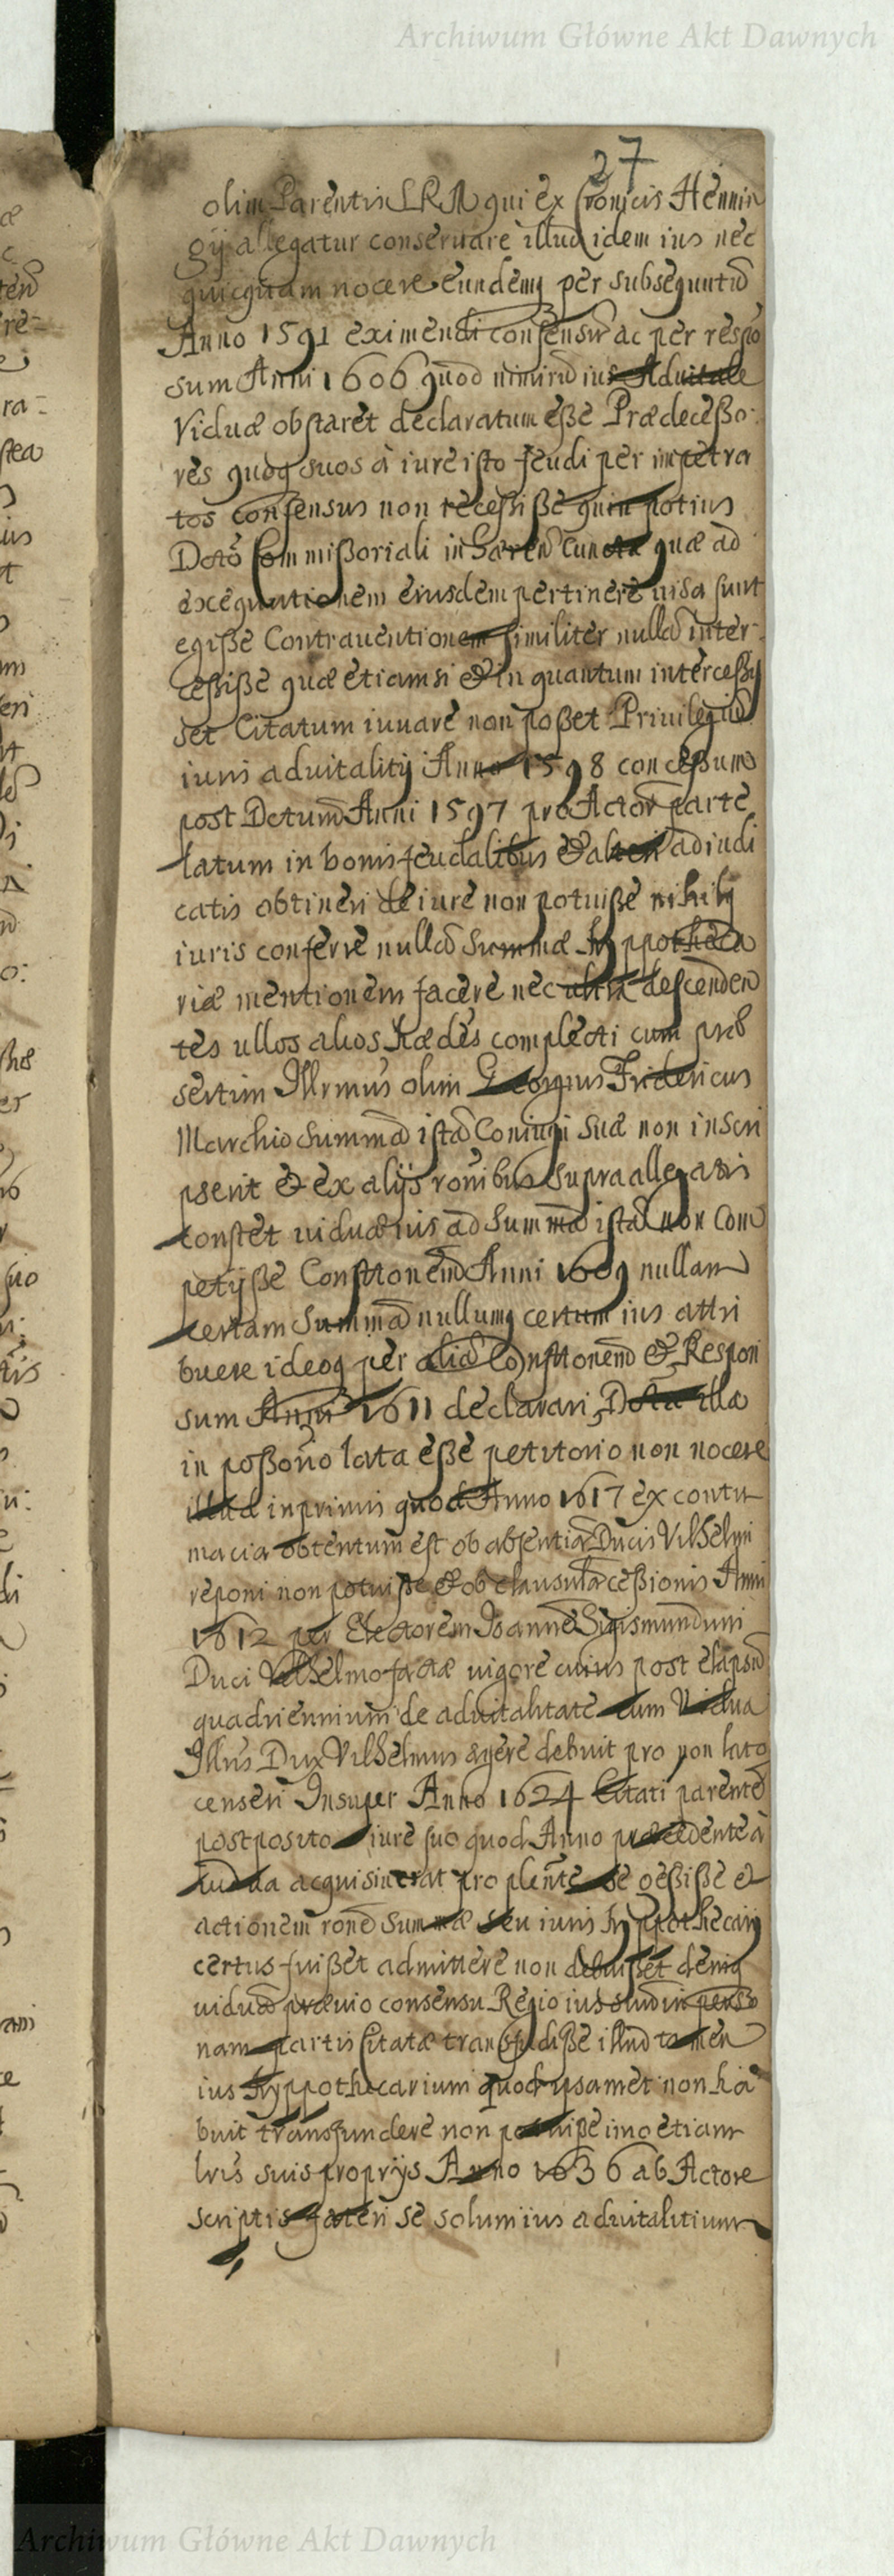 Archiwum Główne Akt Dawnych
27
olim Parentis SRM qui ex Cronicis Hennin
gij allegatur conseruare illud idem ius nec
quicquam nocere eundemq per subsequutũ
Anno 1591 eximendi consensũ ac per respõ
sum Anni 1606 quod nimirũ ius Aduitale
Viduæ obstaret declaratum eße Prædeceßo-
res quoq suos à iure isto feudi per impetra
tos consensus non recessiße quin potius
Dcto Commißoriali inhærendo cuncta quæ ad
exequutionem eiusdem pertinere uisa sunt
egiße Contrauentionem similiter nullã inter-
cessiße quæ etiamsi & in quantum interceßis
set Citatum iuuare non poßet Priuilegiũ
iuris aduitalitij Anno 1598 conceßum
post Dctum Anni 1597 pro Actor parte
latum in bonis feudalibus & alteri adiudi
catis obtineri de iure non potuiße nihilq
iuris conferre nullã Summæ Hyppotheca
riæ mentionem facere nec ultra descenden
tes ullos alios hædes complecti cum præ
sertim Illrmus olim Georgius Fridericus
Marchio summã istã Coniugi suæ non inscri
pserit & ex alijs ronibus supra allegatis
constet uiduæ ius ad summã istã non com
petijße Consttonem Anni 1609 nullam
certam Summã nullumq certum ius attri
buere ideoq per aliã Consttonem & Respon
sum Anni 1611 declarari, Dcta illa
in poßorio lata eße petitorio non nocere
illud inprimis quod Anno 1617 ex contu
macia obtentum est ob absentiã Ducis Vilhelmi
reponi non potuiße & ob clausulã ceßionis Anni
1612 per Electorem Joannẽ Sigismundum
Duci Vilhelmo factæ uigore cuius post elapsũ
quadriennium de aduitalitate cum Vidua
Illris Dux Vilhelmus agere debuit pro non lato
censeri Insuper Anno 1624 Citati parentẽ
postposito iure suo quod Anno præcedente à
uidua acquisiuerat pro plente se geßiße &
actionem ronẽ Summæ seu iuris Hyppothecarij
certus fuißet admittere non debuißet deniq
uiduã præuio consensu Regio ius suum in perso
nam partis Citatæ transfudiße illud tamen
ius Hyppothecarium quod ipsamet non ha
buit transfundere non potuiße imo etiam
lris suis proprijs Anno 1636 ab Actore
scriptis fateri se solum ius aduitalitium
Archiwum Główne Akt Dawnych